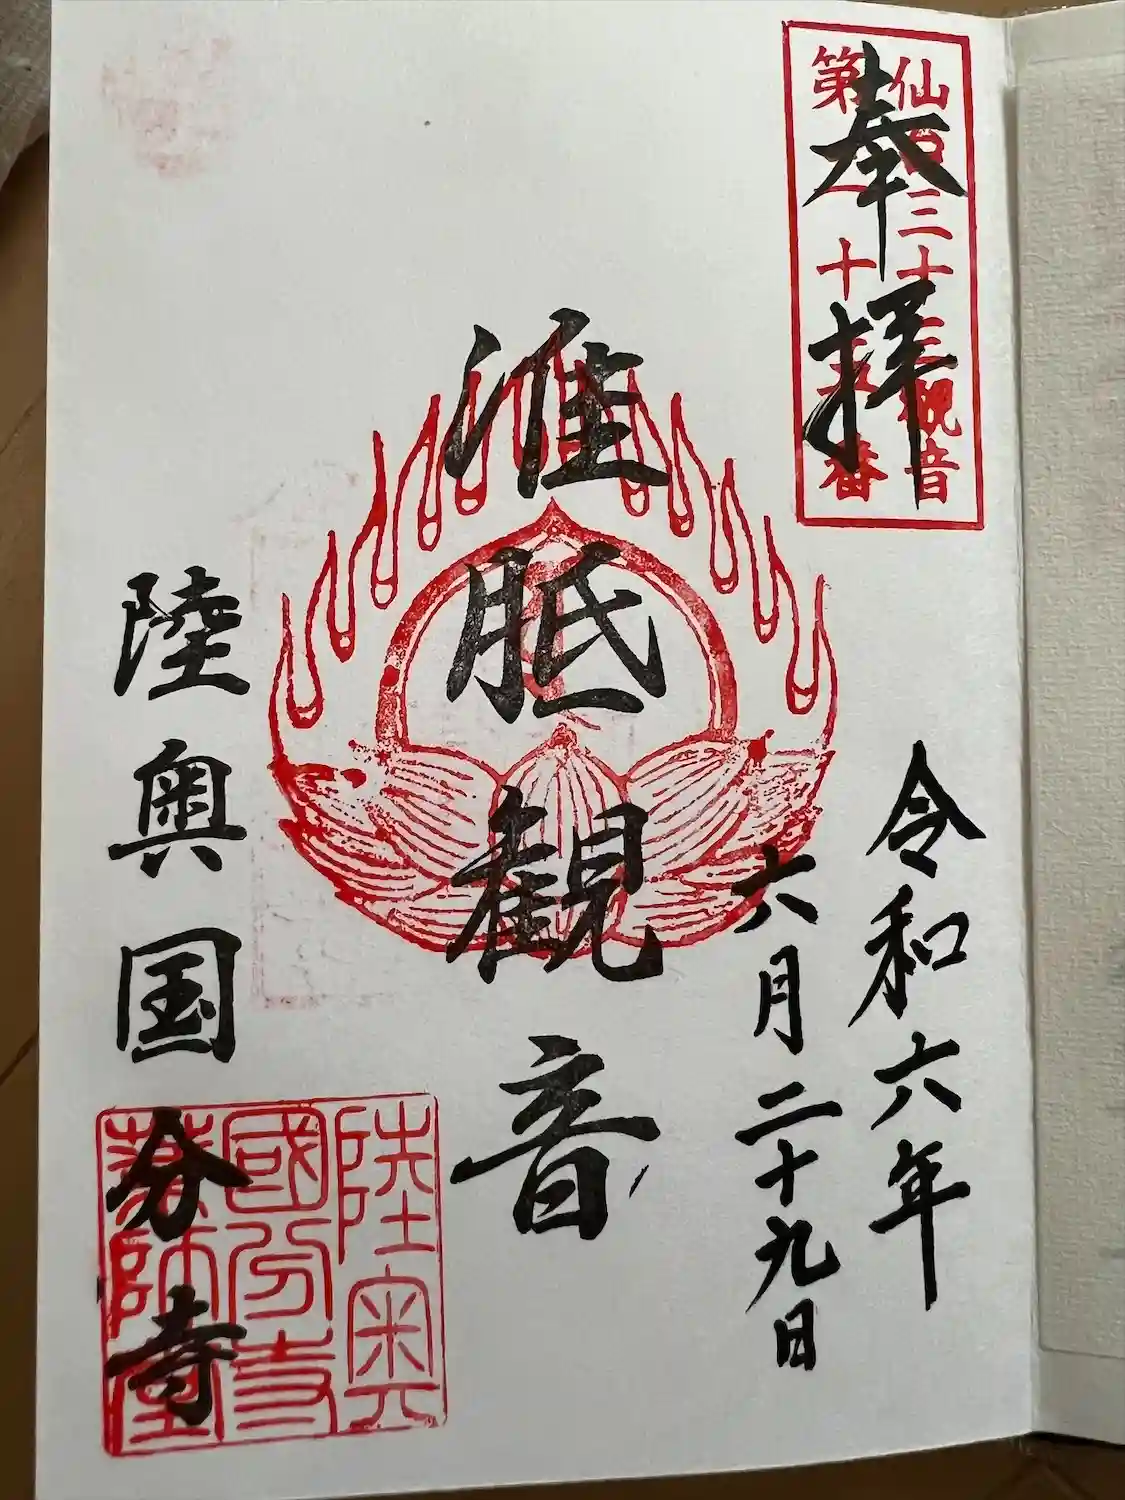 仙台三十三観音
第二十五番
奉拝
令和六年
六月二十九日
准胝観音
陸奥国分寺
陸奥
國分寺
薬師堂